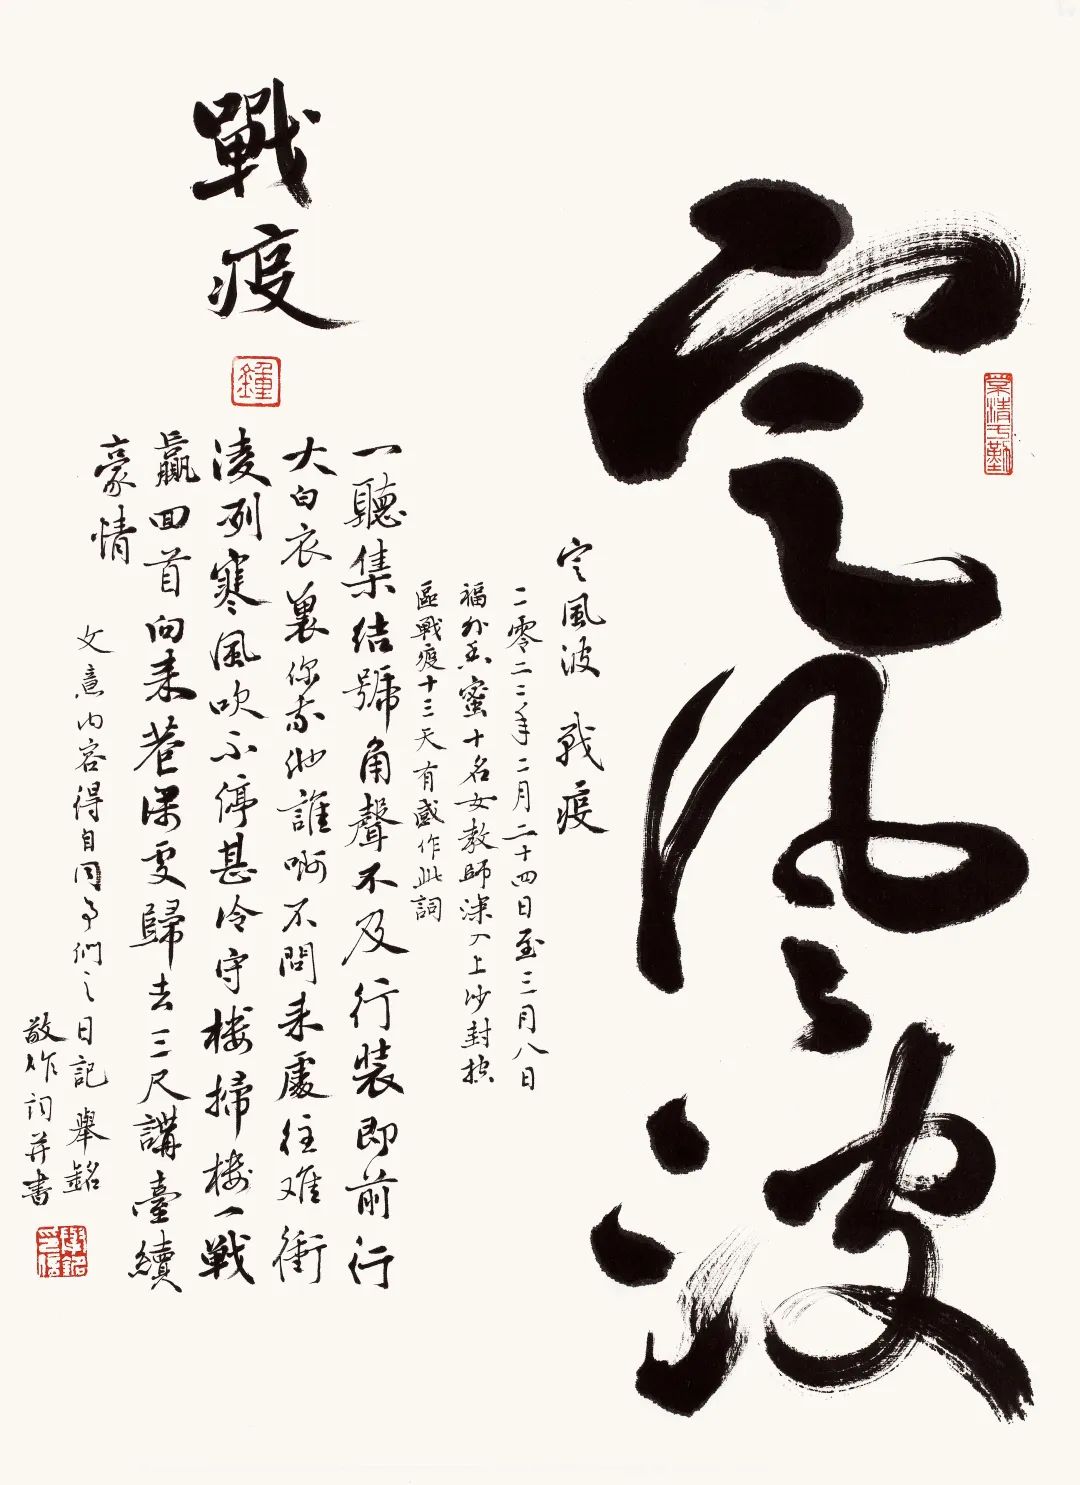 定風波
業精于勤
定風波 戰疫
二零二二年二月二十四日至三月八日
福外蜜十名女教師深入上沙封控
區戰疫十三天有感作此詞
戰疫
鍾
一聽集結號角聲不及行装即前行
大白衣裏你我他誰啊不問来處往难衝
淩列寒風吹不停甚冷守楼掃楼一戰
贏回首向来巷深處歸去三尺講臺續
豪情
文意内容得自同事們之日記 舉銘
敬作詞并書
舉銘印信